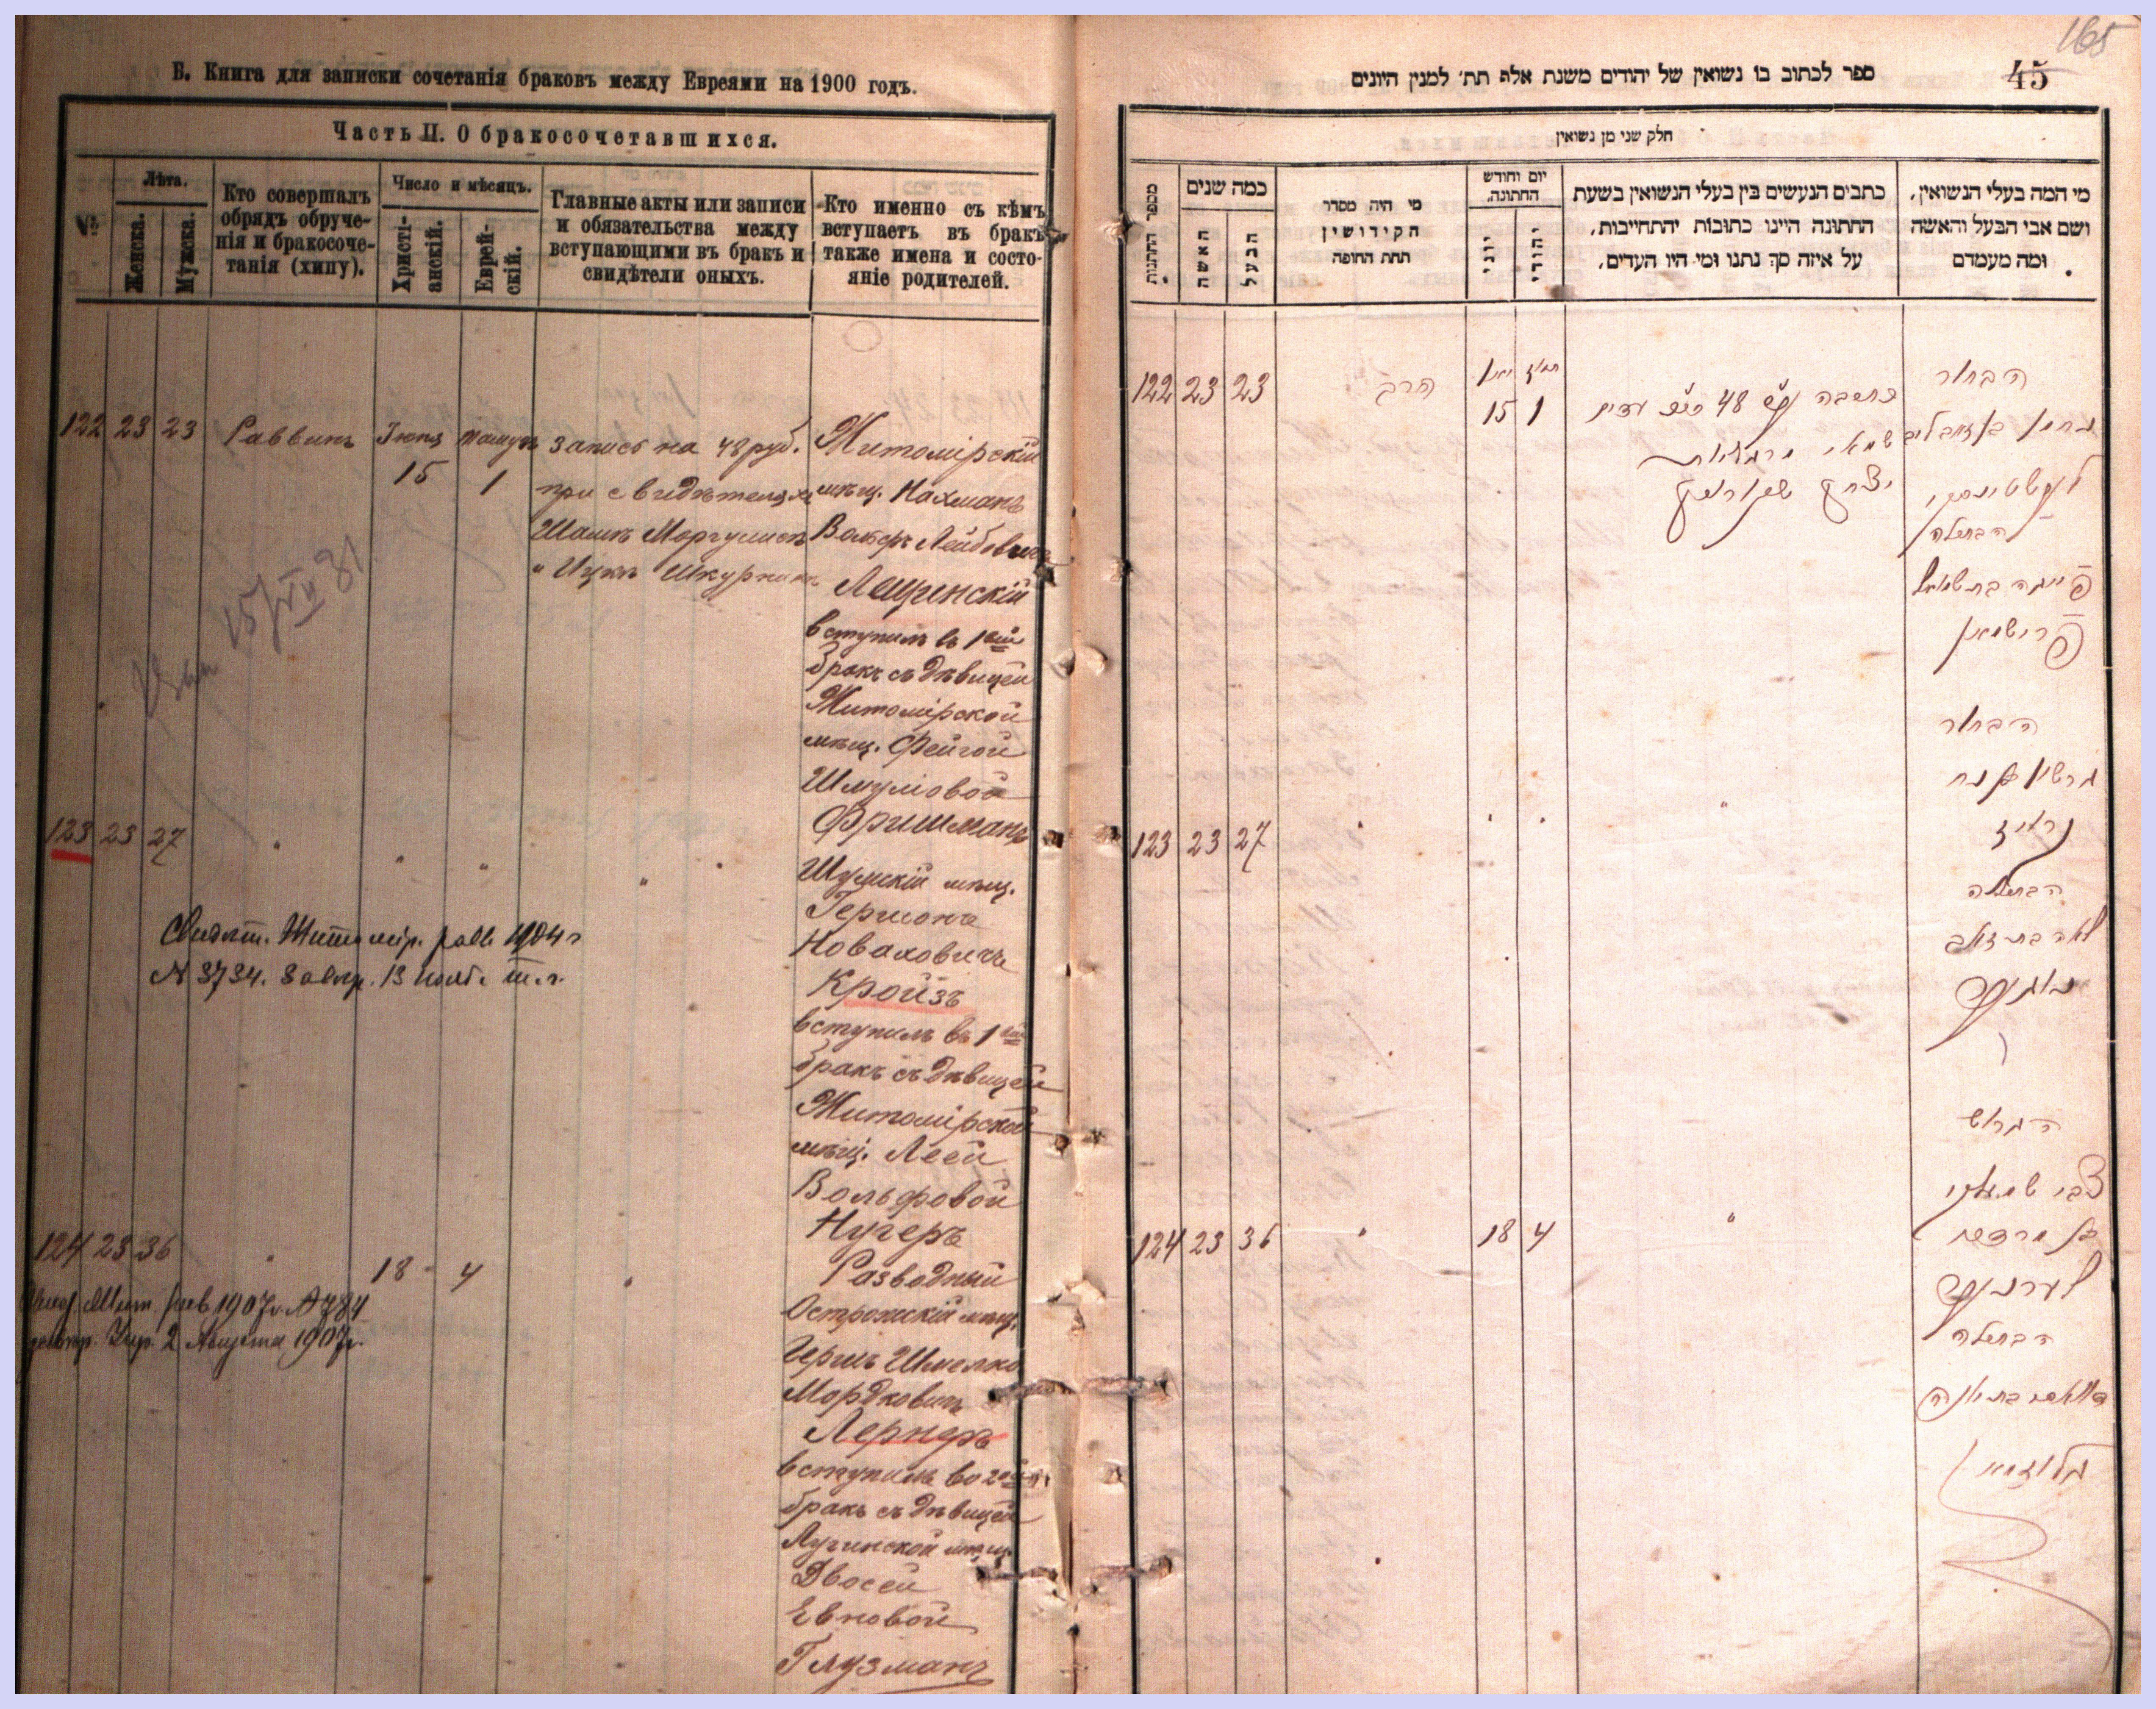 Б. Книга для записки сочетанія браковъ между Евреями на 1900 годъ.
Часть II. О бракосочетавшихся.
№
Лѣта.
Женска.
Мужска.
Кто совершалъ
обрядъ обруче-
нія и бракосоче-
танія (хипу).
Число и мѣсяцъ.
Христі-
анскій.
Еврей-
скій.
Главные акты или записи
и обязательства между
вступающими въ бракъ и
свидѣтели оныхъ.
Кто именно съ кѣмъ
вступаетъ въ бракъ
также имена и состо-
яніе родителей.
122 23 23 Раввинъ Іюня 15 Тамузъ 1
запись на 48 руб.
при свидѣтеляхъ
Шамъ Моргулисъ
" Ицкъ Шкурникъ
Житомірскій
мѣщ. Нахманъ
Вольфъ Лейбовичъ
Лещинскій
вступилъ въ 1ый
бракъ съ дѣвицей
Житомірской
мѣщ. Фейгой
Шмуліовой
Фришманъ
123 23 27 " " " "
Шумскій мѣщ.
Гершонъ
Новаховичъ
Кройзъ
вступилъ въ 1ый
бракъ съ дѣвицей
Житомірской
мѣщ. Леей
Вольфовой
Нугеръ
Свидѣт. Житомір. равв. 1904 г
№ 3734. 13 т. г.
124 23 36 " 18 4 "
Разводный
Острожскій мѣщ.
Гершъ Шмелко
Мордковичъ
Лернеръ
вступилъ во 2ой
бракъ съ дѣвицей
Лугинской мѣщ.
Двосей
Евновой
Глузманъ
Жит. рав 1907 г. № 784
2 Августа 1907 г.
165
45
ספר לכתוב בו נשואין של יהודים משנת אלף תת׳ למנין היונים
חלק שני מן נשואין
מספר החתונות
כמה שנים
האשה
הבעל
מי היה מסדר
הקידושין
תחת החופה
יום וחודש
החתונה.
יוני
יהודי
כתבים הנעשים בין בעלי הנשואין בשעת
החתונה היינו כתובות יהתחייבות,
על איזה סך נתנו ומי היו העדים.
מי המה בעלי הנשואין,
ושם אבי הבעל והאשה
ומה מעמדם
122 23 23 הרב יוני 15 תמוז 1
48
יצחק
הבחור
נחמן
הבתולה
פייגה בת שמואל
פרישמאן
123 23 27 " " " "
הבחור
גרשון בן נח
קרויז
הבתולה
לאה בת זאב
נוגער
124 23 36 " 18 4 "
הגרוש
צבי שמעלקי
בן מרדכי
לערנער
הבתולה
גלוזמאן